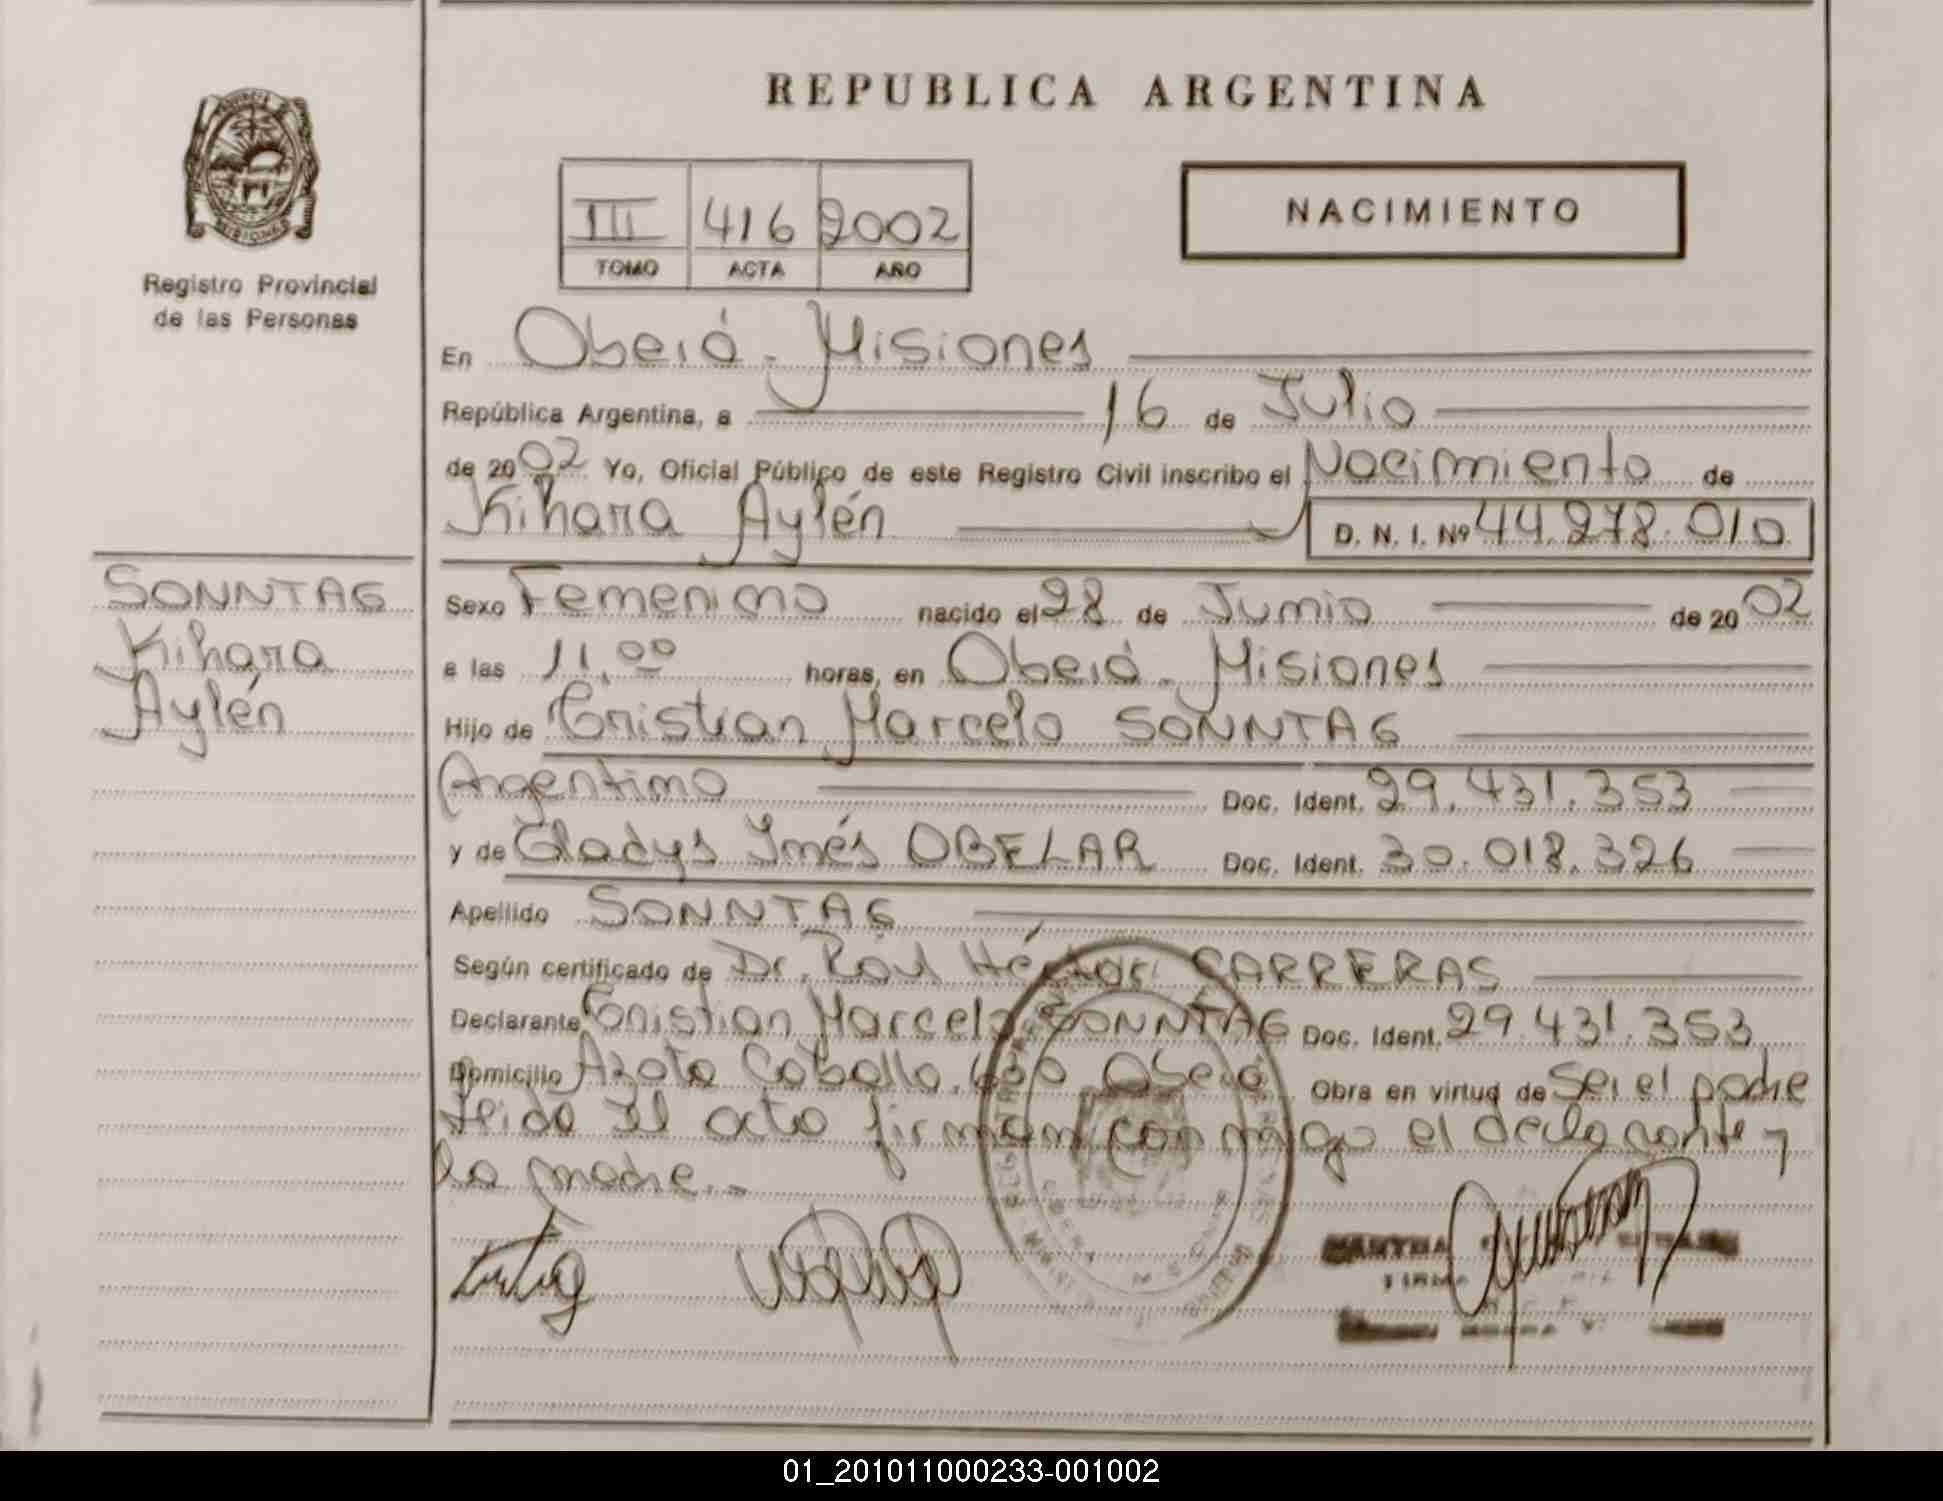 REPUBLICA ARGENTINA
PROVINCIA DE MISIONES
Registro Provincial
de las Personas
III 416 2002
TOMO ACTA AÑO
NACIMIENTO
En Oberá - Misiones
República Argentina, a 16 de Julio
de 2002 Yo, Oficial Público de este Registro Civil inscribo el Nacimiento de
Kihara Aylén
D. N. I. Nº 44.278.010
SONNTAG
Kihara
Aylén
Sexo Femenino nacido el 28 de Junio de 2002
a las 11.00 horas, en Oberá - Misiones
Hijo de Cristian Marcelo SONNTAG
Argentino Doc. Ident. 29.431.353
y de Gladys Inés OBELAR Doc. Ident. 30.018.326
Apellido SONNTAG
Según certificado de Dr. Raúl Héctor CARRERAS
Declarante Cristian Marcelo SONNTAG Doc. Ident. 29.431.353
Domicilio Caballo. 600 Oberá Obra en virtud de Ser el padre
Leida El acta firman conmigo el declarante y
la madre.-
MARTHA
FIRMA
01_201011000233-001002